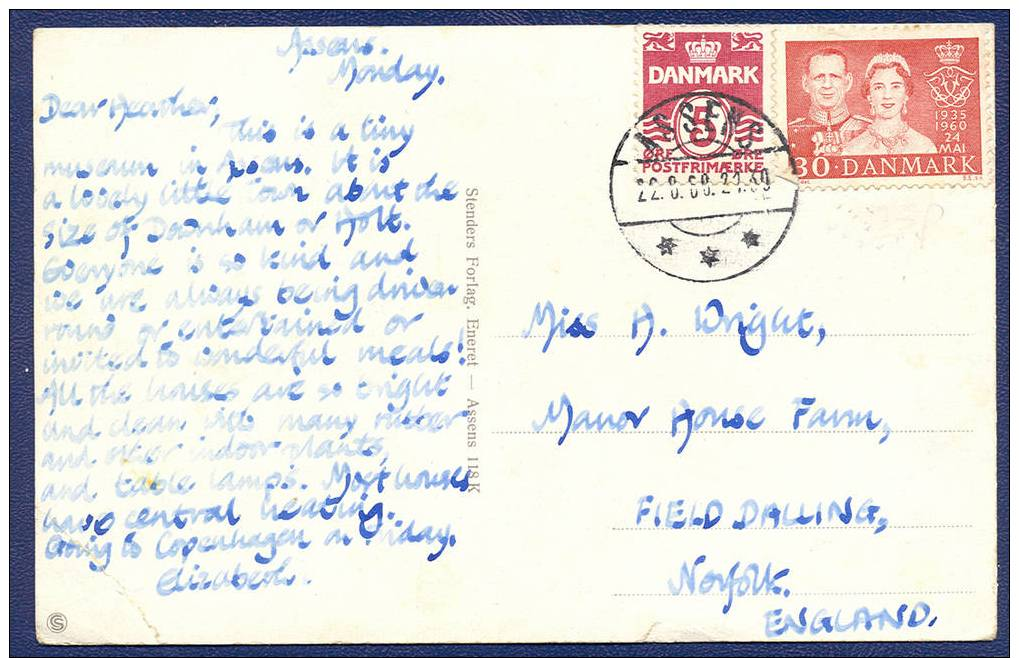 Assens.
Monday.
Dear Heather,
This is a tiny
museum in Assens. It is
a lovely little town about the
size of Downham or Holt.
Everyone is so kind and
we are always being driven
round or entertained or
invited to wonderful meals!
All the houses are so bright
and clean with many
and indoor plants,
and table lamps. Most houses
have central heating.
Going to Copenhagen on Friday.
Elizabeth.
Stenders Forlag. Eneret — Assens 118 K
DANMARK
5
ØRE ØRE
POSTFRIMÆRKE
1935
1960
24
MAI
30·DANMARK
ASSENS
Miss H. Wright,
Manor House Farm,
FIELD DALLING,
Norfolk.
ENGLAND.
S